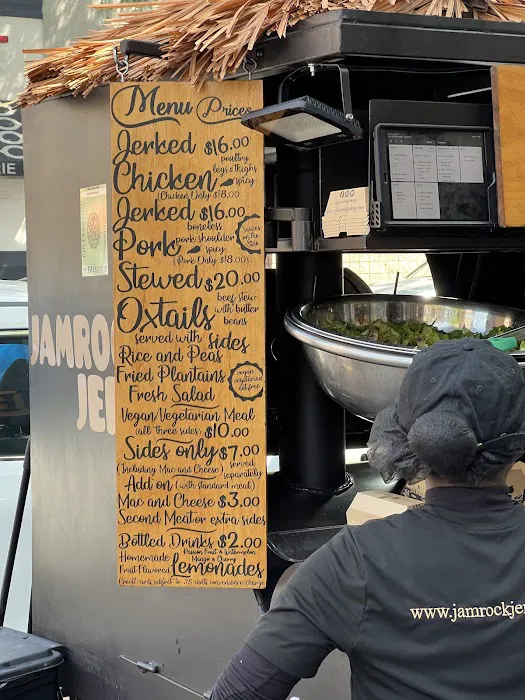 Menu Prices
Jerked $16.00
poultry
legs & thighs
Chicken spicy
(Chicken Only $18.00)
Jerked $16.00
boneless
pork shoulder
Pork spicy
(Pork Only $18.00)
Stewed $20.00
beef stew
with butter
beans
Oxtails
served with sides
Rice and Peas
Fried Plantains
Fresh Salad
vegan
vegetarian
Vegan Vegetarian Meal
(all three sides) $10.00
Sides only $7.00
(Including Mac and Cheese) served
separately
Add on (with standard meal)
Mac and Cheese $3.00
Second Meat or extra sides
Bottled Drinks $2.00
Homemade Passion Fruit & Watermelon
Mango & Cherry
Fruit Flavored Lemonades
Credit cards subject to .75 cents convenience charge
JAMRO
JE
www.jamrockje
RIE